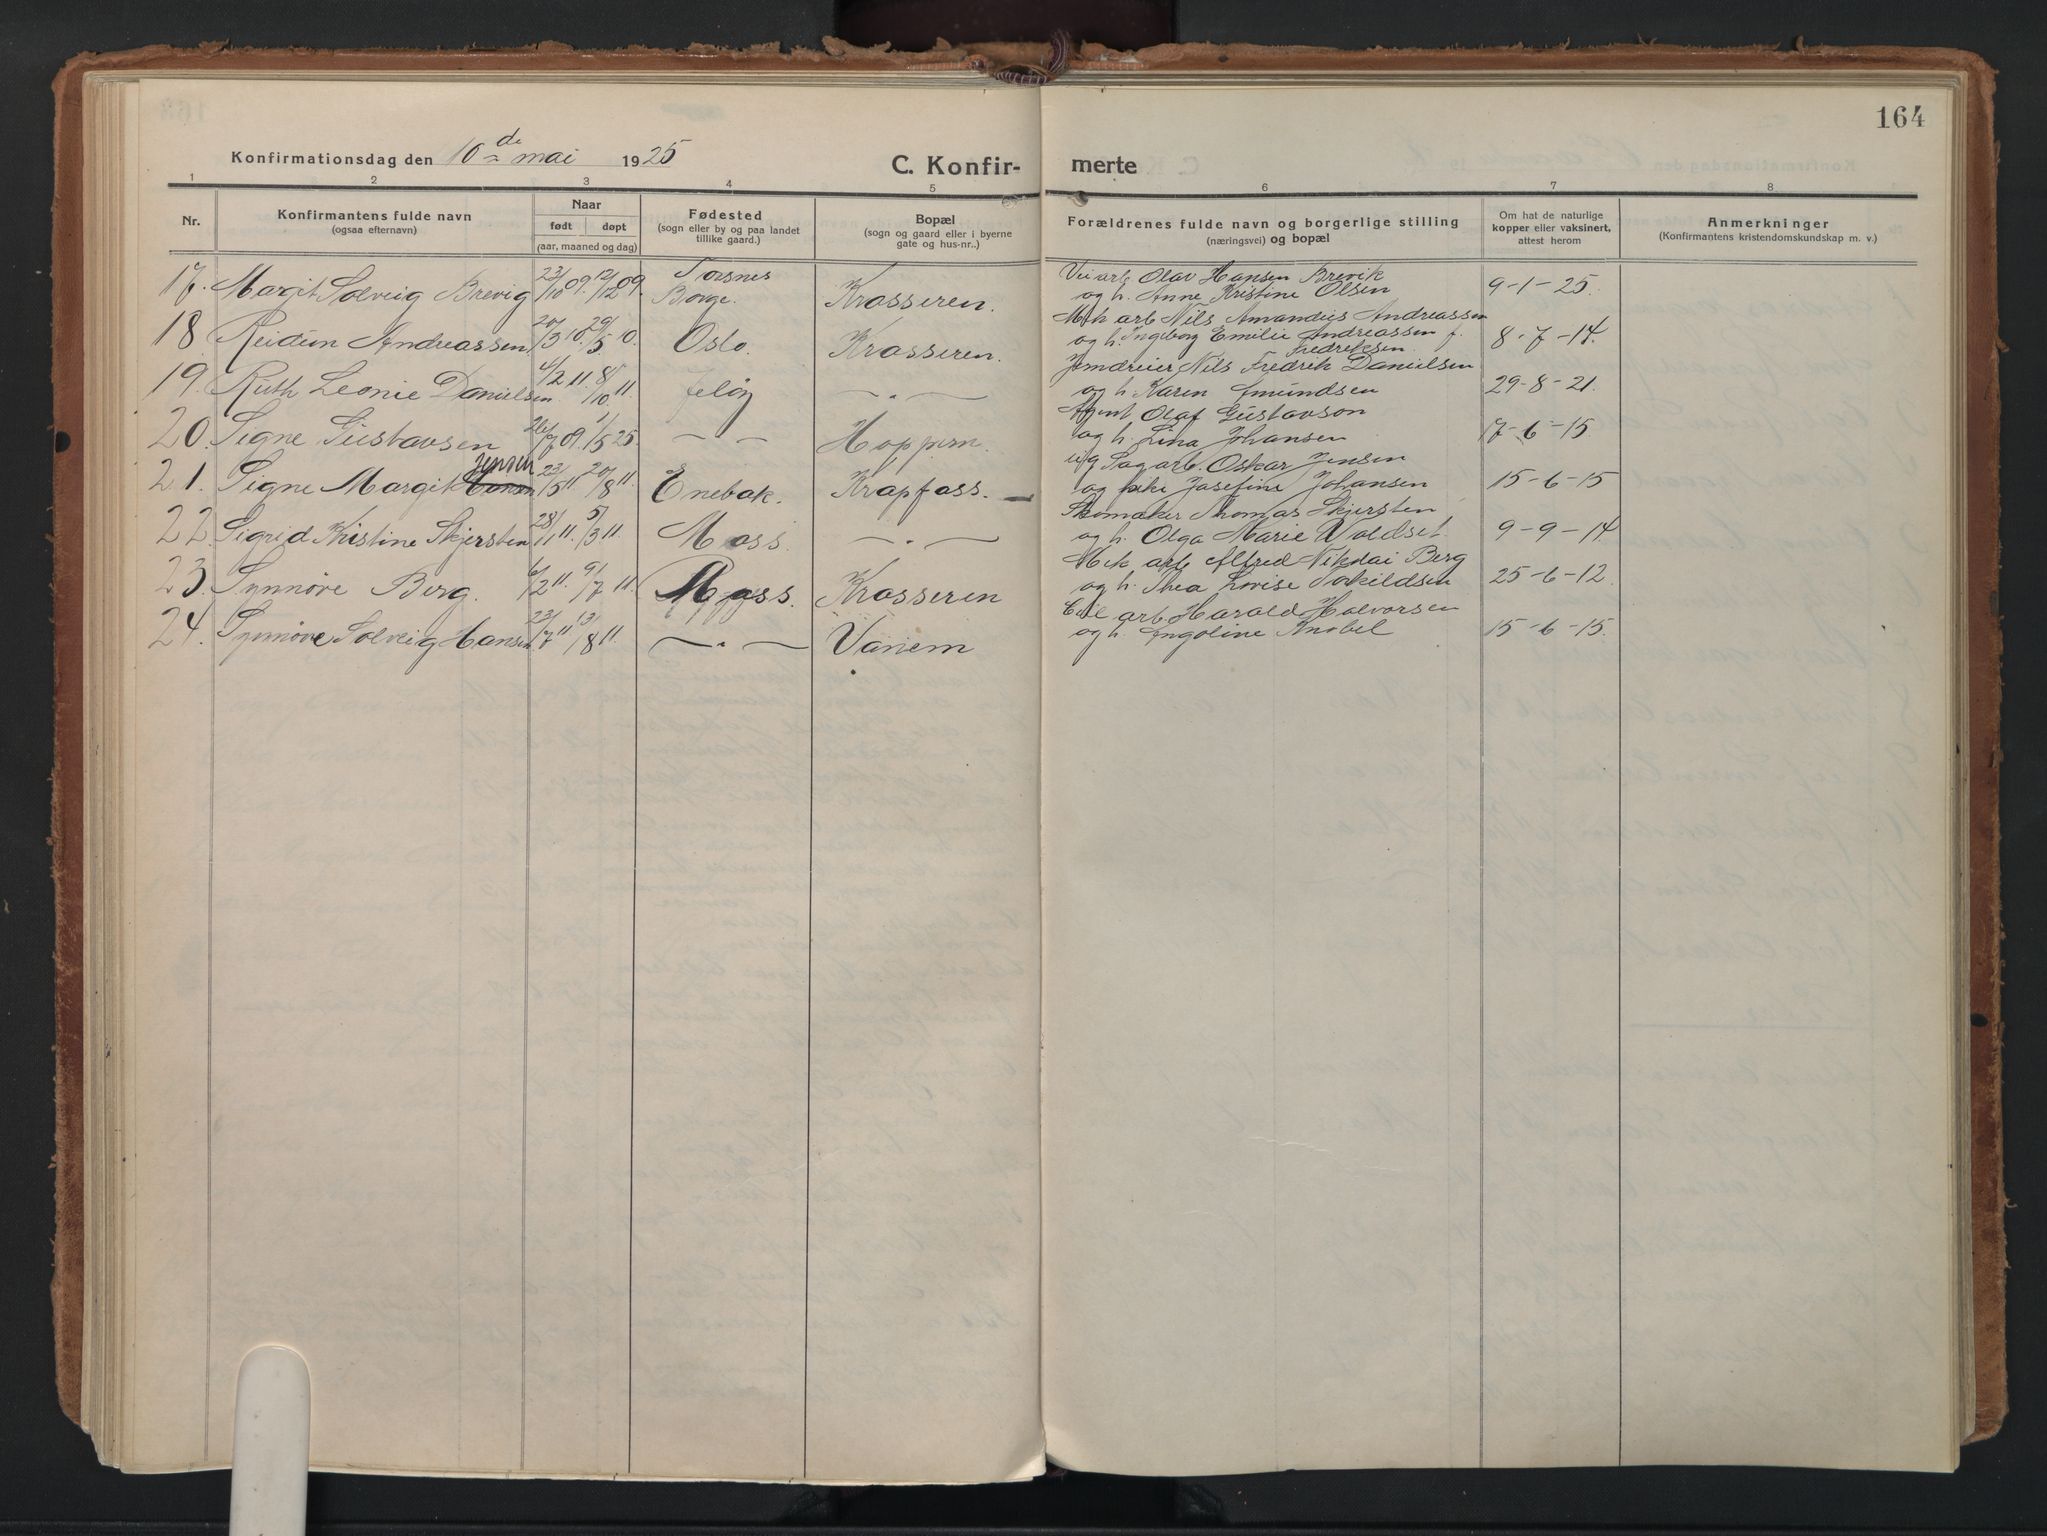 164
Konfirmationsdag den 10de mai 1925
C. Konfir-
merte
1 2 3 4 5 6 7 8
Nr.
Konfirmantens fulde navn
(ogsaa efternavn)
Naar
født døpt
(aar, maaned og dag)
Fødested
(sogn eller by og paa landet
tillike gaard.)
Bopæl
(sogn og gaard eller i byerne
gate og hus-nr..)
Forældrenes fulde navn og borgerlige stilling
(næringsvei) og bopæl
Om hat de naturlige
kopper eller vaksinert,
attest herom
Anmerkninger
(Konfirmantens kristendomskundskap m. v.)
17. Margit Solveig Brevig 23/10 09. 12/12 09. Torsnes Borge. Krosseren. Veiarb Olav Hansen Brevik
og h. Anne Kristine Olsen 9-1-25.
18 Reidun Andreassen 20/3 10. 29/5 10. Oslo. Krosseren. Mek arb Nils Amandus Andreassen
og h. Ingeborg Emilie Andreassen f.
Fredriksen 8-7-14.
19. Ruth Leonie Danielsen 4/2 11. 8/10 11. Jeløy — " — Jerndreier Nils Fredrik Danielsen
og h. Karen Amundsen 29-8-21.
20. Signe Gustavsen 26/7 09. 1/5 25 — — Hoppern. Agent Olaf Gustavson
og h. Lina Johansen 17-6-15.
21. Signe Margit Hansen Jensen 23/5 11. 20/8 11. Enebak. Krapfoss. — ug Sagarb. Oskar Jensen
og pike Josefine Johansen 15-6-15
22. Sigrid Kristine Skjersten 28/1 11. 5/3 11. Moss. — " — Skomaker Thomas Skjersten
og h. Olga Marie Voldset. 9-9-14.
23. Synnøve Berg. 6/2 11. 9/7 11 Moss. Krosseren Mek arb Alfred Nikolai Berg
og h. Thea Lovise Torkildsen 25-6-12.
24. Synnøve Solveig Hansen 23/7 11 13/8 11. — " — Vanem arb Harald Halvorsen
og h. Engoline Knobel 15-6-15.